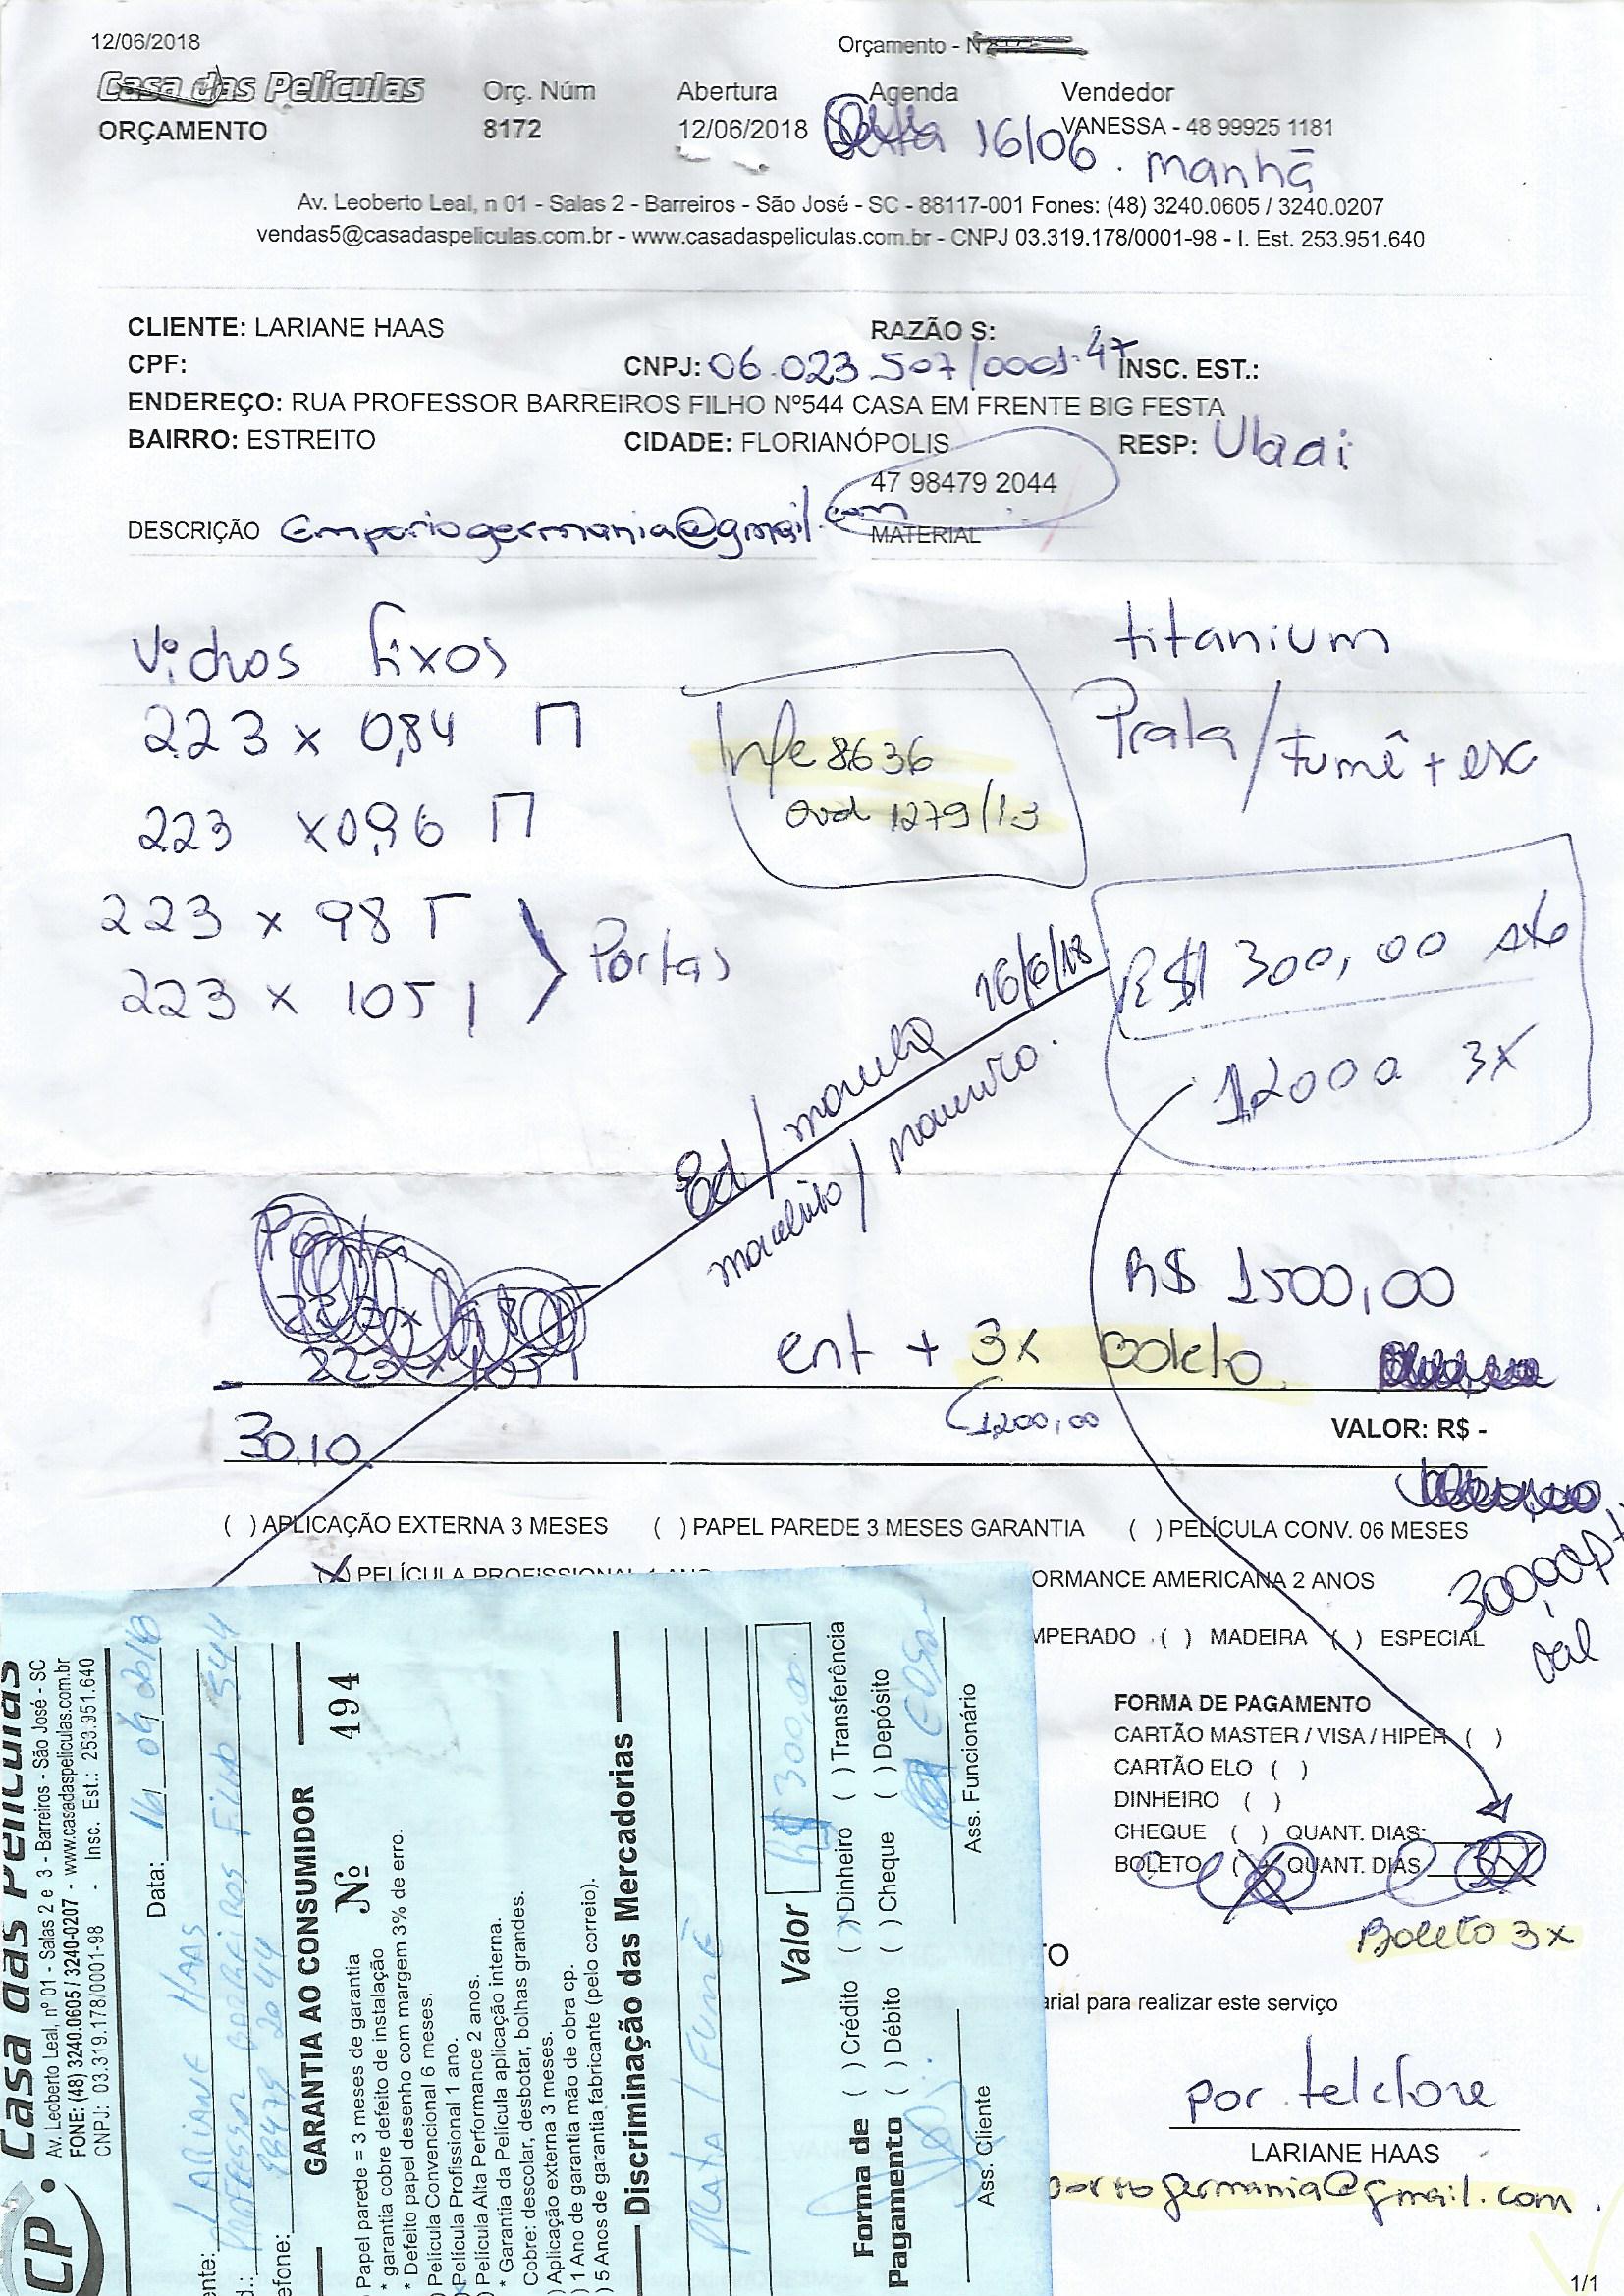 12/06/2018
Orçamento - N
Casa das Películas
Orç. Núm
Abertura
Agenda
Vendedor
ORÇAMENTO
8172
12/06/2018
VANESSA - 48 99925 1181
16/06. manhã
Av. Leoberto Leal, n 01 - Salas 2 - Barreiros - São José - SC - 88117-001 Fones: (48) 3240.0605 / 3240.0207
vendas5@casadaspeliculas.com.br - www.casadaspeliculas.com.br - CNPJ 03.319.178/0001-98 - I. Est. 253.951.640
CLIENTE: LARIANE HAAS
RAZÃO S:
CPF:
CNPJ: 06.023.507/0001-47
INSC. EST.:
ENDEREÇO: RUA PROFESSOR BARREIROS FILHO Nº544 CASA EM FRENTE BIG FESTA
BAIRRO: ESTREITO
CIDADE: FLORIANÓPOLIS
RESP: Uladi
47 98479 2044
DESCRIÇÃO Emporiogermania@gmail.com
MATERIAL
Vidros fixos
titanium
223 x 0,84
Prata/Fumê + esc
nfe 8636
223 x 0,96
223 x 98
223 x 105
Portas
16/6/18
R$ 300,00
1200 3x
Ed/
R$ 1500,00
223 x 105
ent + 3x Boleto
1.200,00
VALOR: R$ -
30.10
( ) APLICAÇÃO EXTERNA 3 MESES ( ) PAPEL PAREDE 3 MESES GARANTIA ( ) PELÍCULA CONV. 06 MESES
(X) PELÍCULA PROFISSIONAL 1 ANO
ORMANCE AMERICANA 2 ANOS
300,00
MPERADO ( ) MADEIRA ( ) ESPECIAL
FORMA DE PAGAMENTO
CARTÃO MASTER / VISA / HIPER ( )
CARTÃO ELO ( )
DINHEIRO ( )
CHEQUE ( ) QUANT. DIAS:
BOLETO (X) QUANT. DIAS 3x
Boleto 3x
TO
arial para realizar este serviço
por telefone
LARIANE HAAS
germania@gmail.com
1/1
CP. Casa das Películas
Av. Leoberto Leal, nº 01 - Salas 2 e 3 - Barreiros - São José - SC
FONE: (48) 3240.0605 / 3240-0207 - www.casadaspeliculas.com.br
CNPJ: 03.319.178/0001-98 - Insc. Est.: 253.951.640
Data:
ente: LARIANE HAAS
d.: PROFESSOR BARREIROS FILHO 544
efone: 98479 2044
GARANTIA AO CONSUMIDOR
Nº 494
Papel parede = 3 meses de garantia
* garantia cobre defeito de instalação
* Defeito papel desenho com margem 3% de erro.
) Película Convencional 6 meses.
Película Profissional 1 ano.
) Película Alta Performance 2 anos.
* Garantia da Película aplicação interna.
Cobre: descolar, desbotar, bolhas grandes.
) Aplicação externa 3 meses.
) 1 Ano de garantia mão de obra cp.
) 5 Anos de garantia fabricante (pelo correio).
Discriminação das Mercadorias
PRATA / FUMÊ
Valor R$ 300,00
Forma de Pagamento
( ) Crédito (X) Dinheiro ( ) Transferência
( ) Débito ( ) Cheque ( ) Depósito
Ass. Cliente
Ass. Funcionário